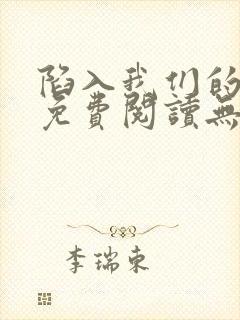 陷入我们的
免費閱讀無
李瑞東